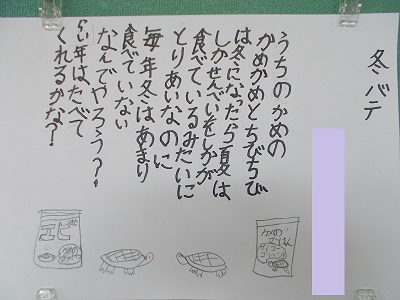 冬バテ
うちのかめの
かめかめとちびちび
は冬になったら夏は
しかせんべいをしかが
食べているみたいに
とりあいなのに
毎年冬はあまり
食べていない
なんでやろう?
らい年は、たべて
くれるかな?
エビ
かめの
ごはん